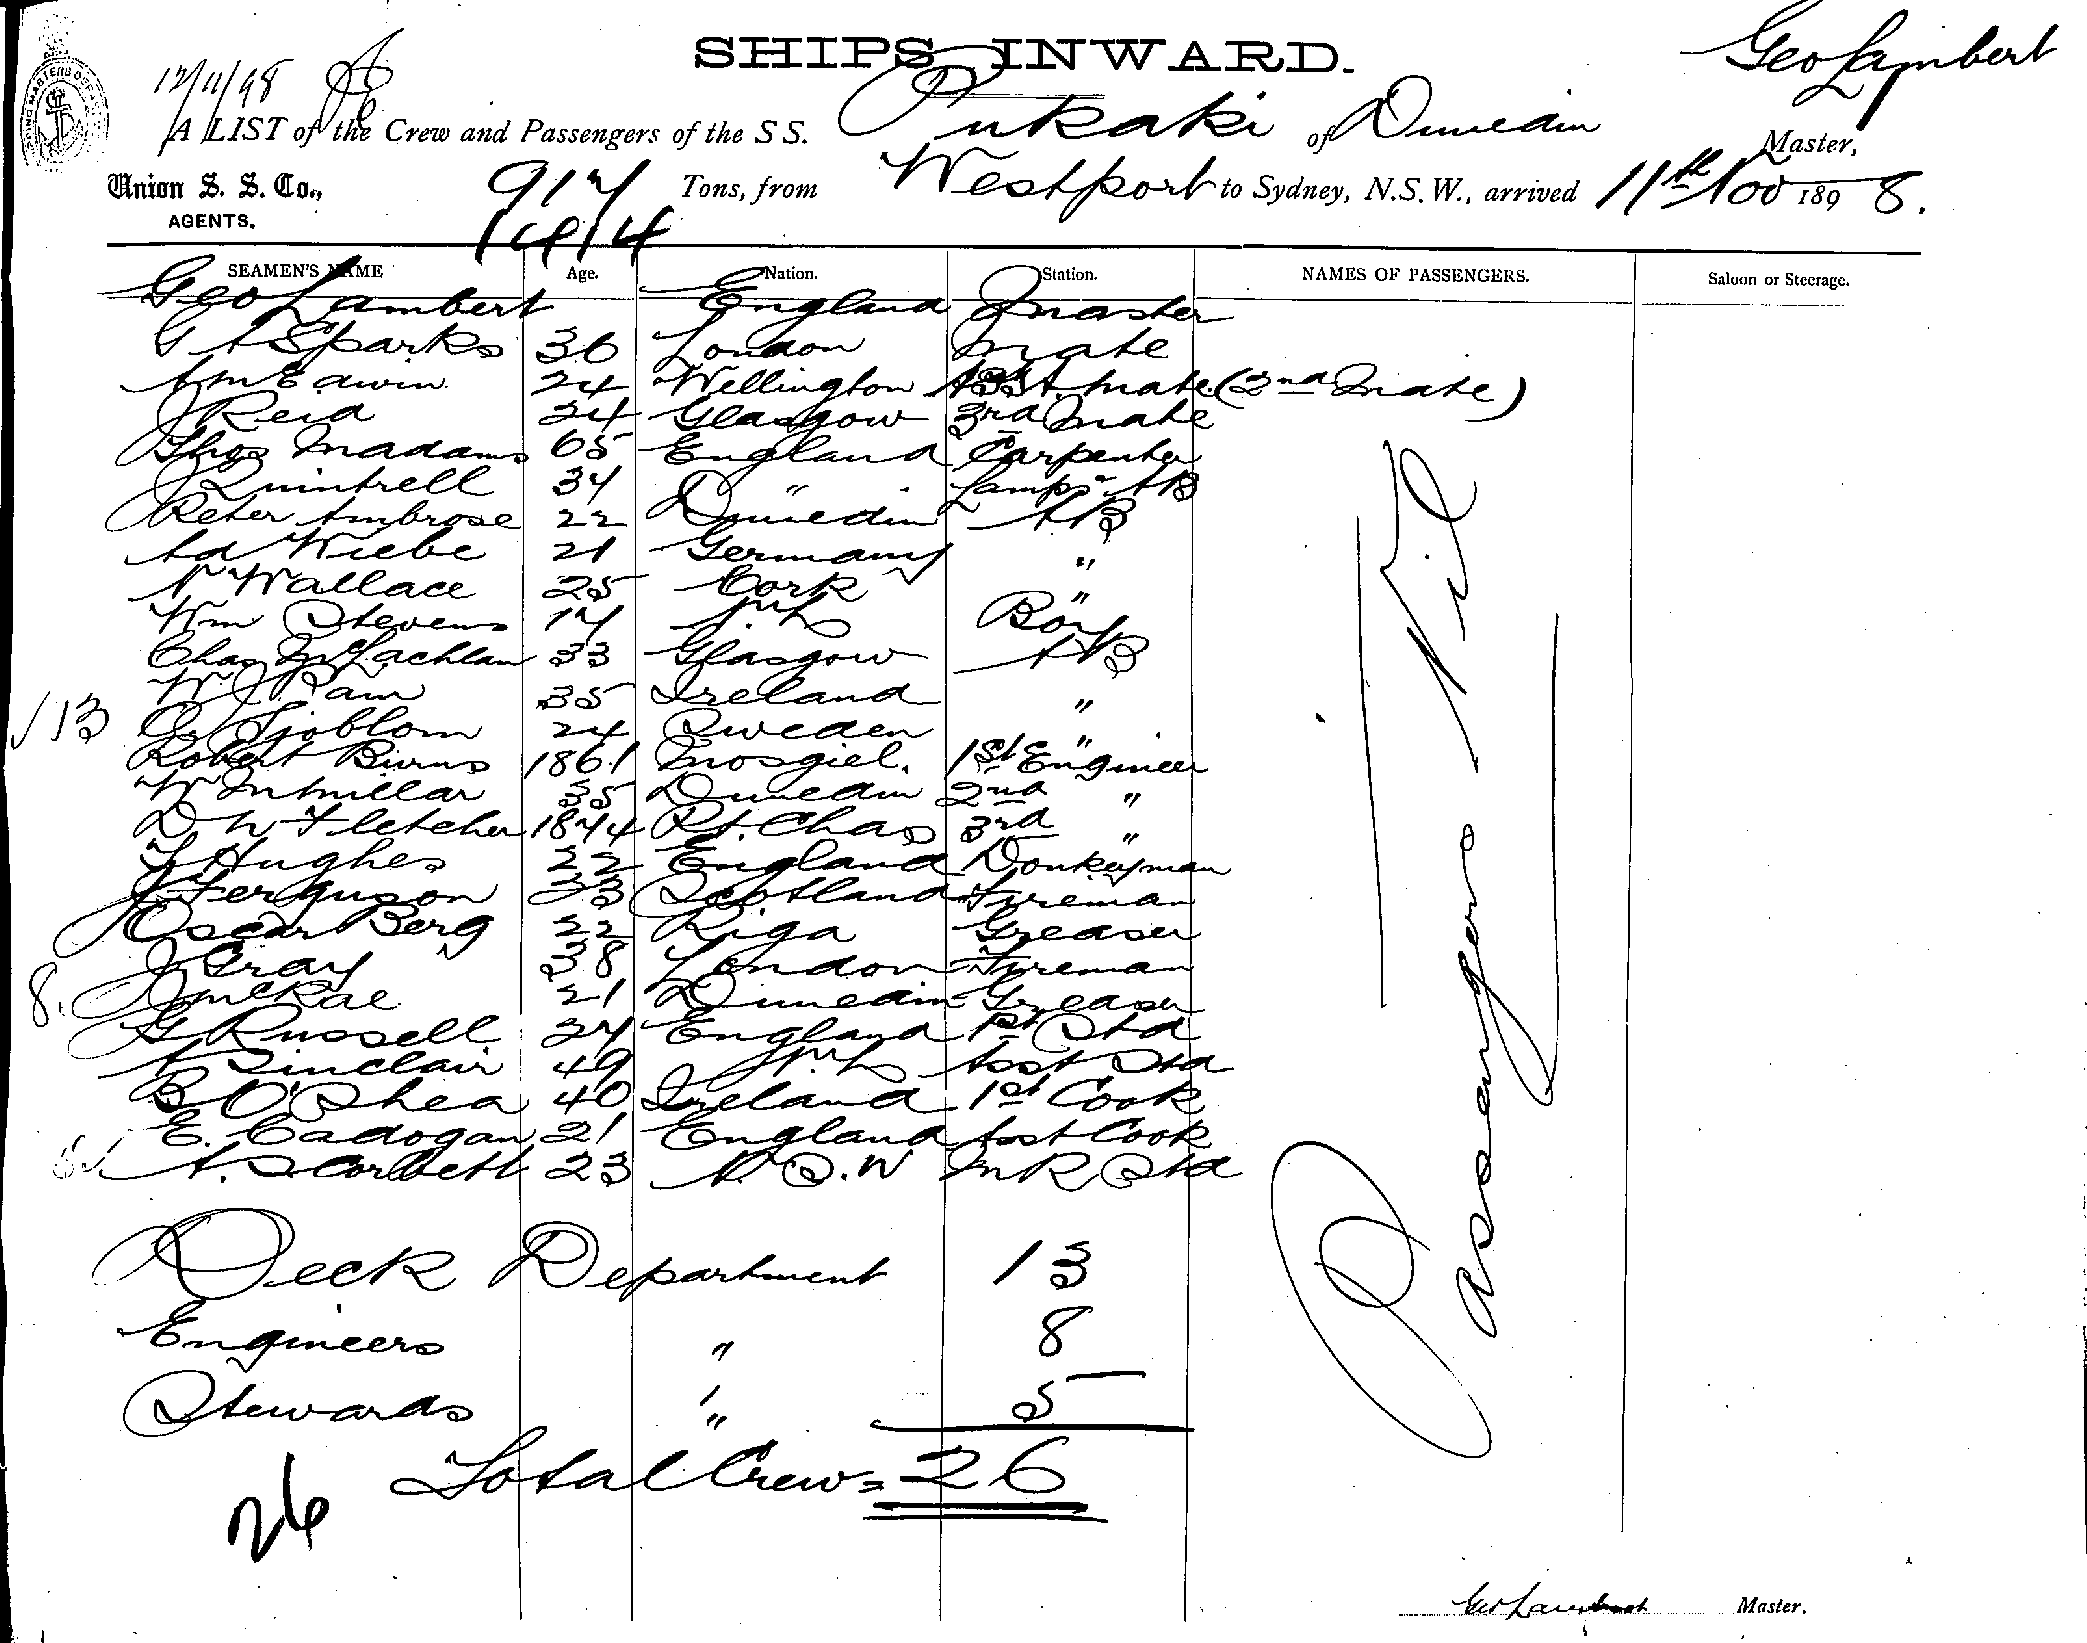 SHIPS INWARD.
Geo Lambert
12/11/98
A LIST of the Crew and Passengers of the SS. Pukaki of Dunedin Master,
Union S. S. Co., 917 Tons, from Westport to Sydney, N.S.W., arrived 11th Nov 1898.
AGENTS. 1414
SEAMEN'S NAME Age. Nation. Station. NAMES OF PASSENGERS. Saloon or Steerage.
Geo Lambert England Master
G A Sparks 36 London Mate
A M Edwin 24 Wellington Mate (2nd Mate)
J Reid 24 Glasgow 3rd Mate
Thos Madams 65 England Carpenter
J Quintrell 34 " Lamps AB
Peter Ambrose 22 Dunedin AB
Ad Wiebe 21 Germany "
N Wallace 25 Cork "
Wm Stevens 17 Boy
Chas McLachlan 33 Glasgow AB
W J Pain 35 Ireland "
13 O Sjoblom 24 Sweden "
Robert Burns 1861 Mosgiel. 1st Engineer
W McMillar 35 Dunedin 2nd "
D W Fletcher 1874 Pt. Chas 3rd "
T Hughes 22 England Donkeyman
J Ferguson 33 Scotland Fireman
Oscar Berg 22 Riga Greaser
J Gray 38 London Fireman
8. J McRae 21 Dunedin Greaser
G Russell 24 England 1st Std
A Sinclair 49 Asst Std
B O'Shea 40 Ireland 1st Cook
E. Cadogan 21 England Asst Cook
A. S Corbett 23 N.S.W M R Std
Passengers Nil
Deck Department 13
Engineers " 8
Stewards " 5
Total Crew = 26
26
Geo Lambert Master.